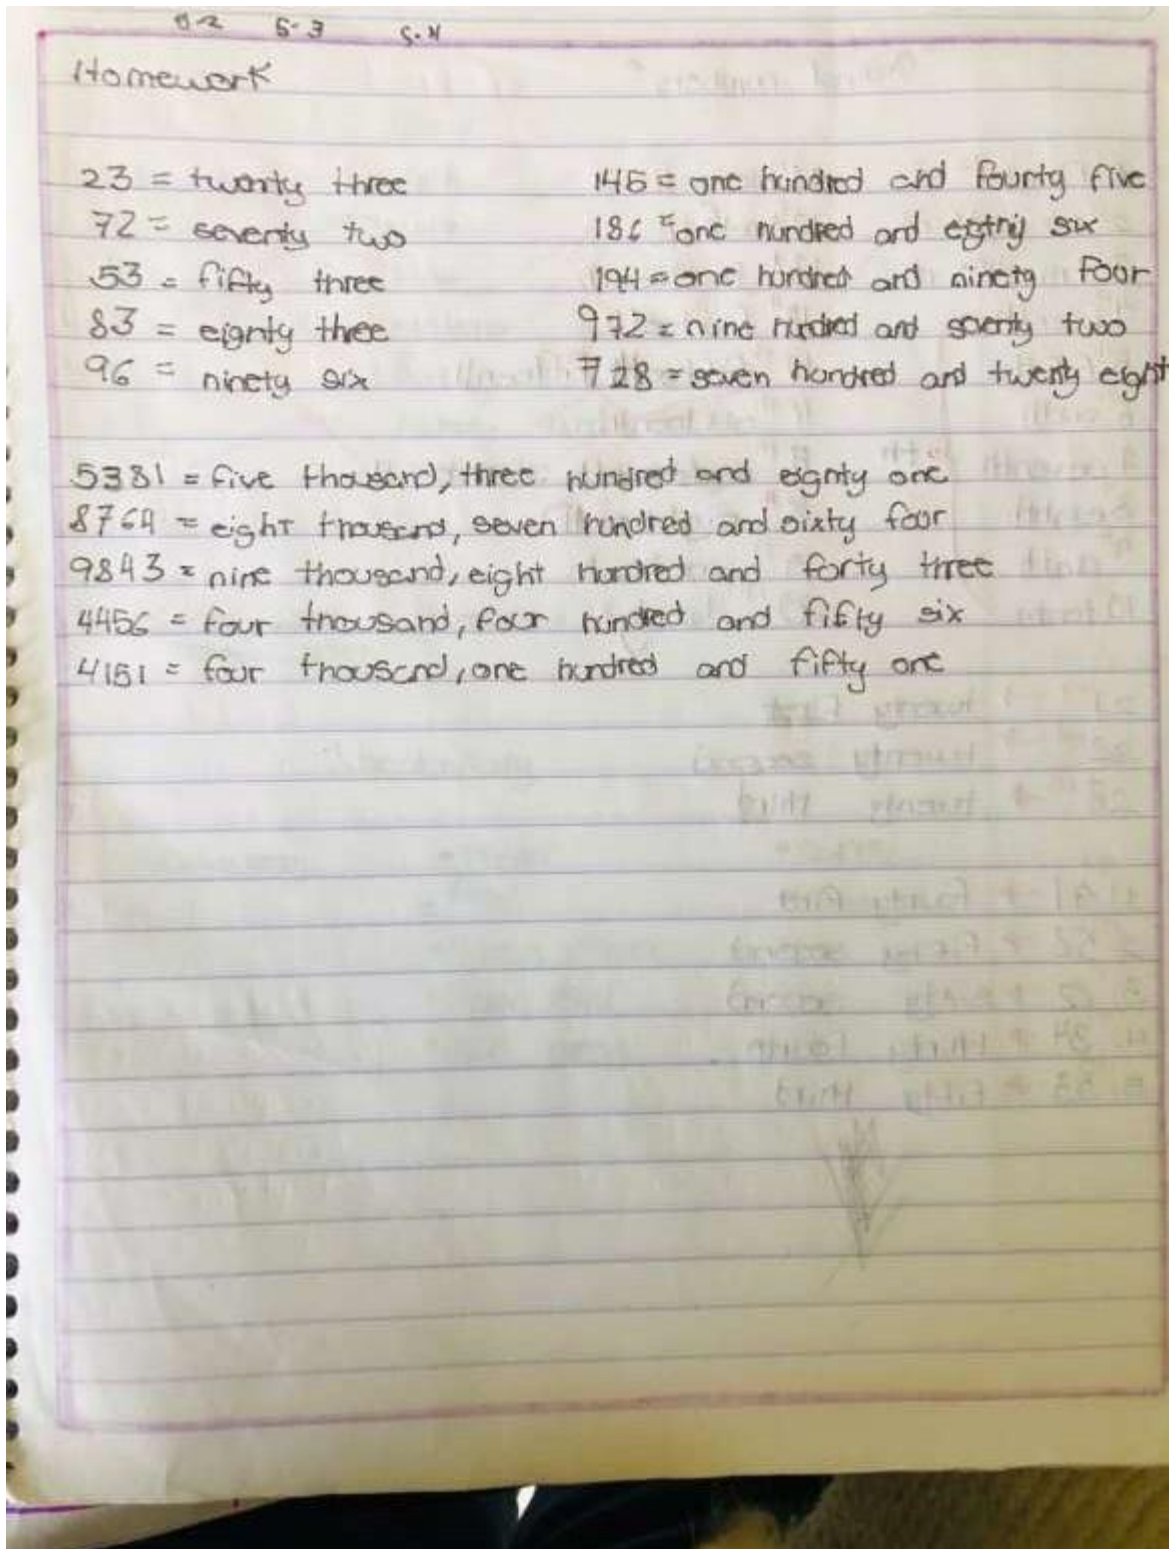 5-3 5-4
Homework
23 = twenty three
72 = seventy two
53 = fifty three
83 = eighty three
96 = ninety six
145 = one hundred and fourty five
186 = one hundred and eighty six
194 = one hundred and ninety four
972 = nine hundred and seventy two
728 = seven hundred and twenty eight
5381 = five thousand, three hundred and eighty one
8764 = eight thousand, seven hundred and sixty four
9843 = nine thousand, eight hundred and forty three
4456 = four thousand, four hundred and fifty six
4151 = four thousand, one hundred and fifty one